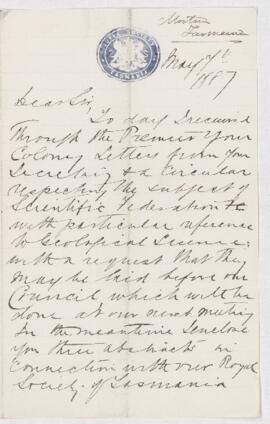 Tasmania
May 7th
1887
Dear Sir,
To day I received
through the Premier your
Colony Letters from your
Secretary & a Circular
respecting the subject of
Scientific Federation &c
with particular reference
to Geological Science,
with a request that they
may be laid before our
Council which will be
done at our next meeting
In the meantime I enclose
you three abstracts in
connection with our Royal
Society of Tasmania